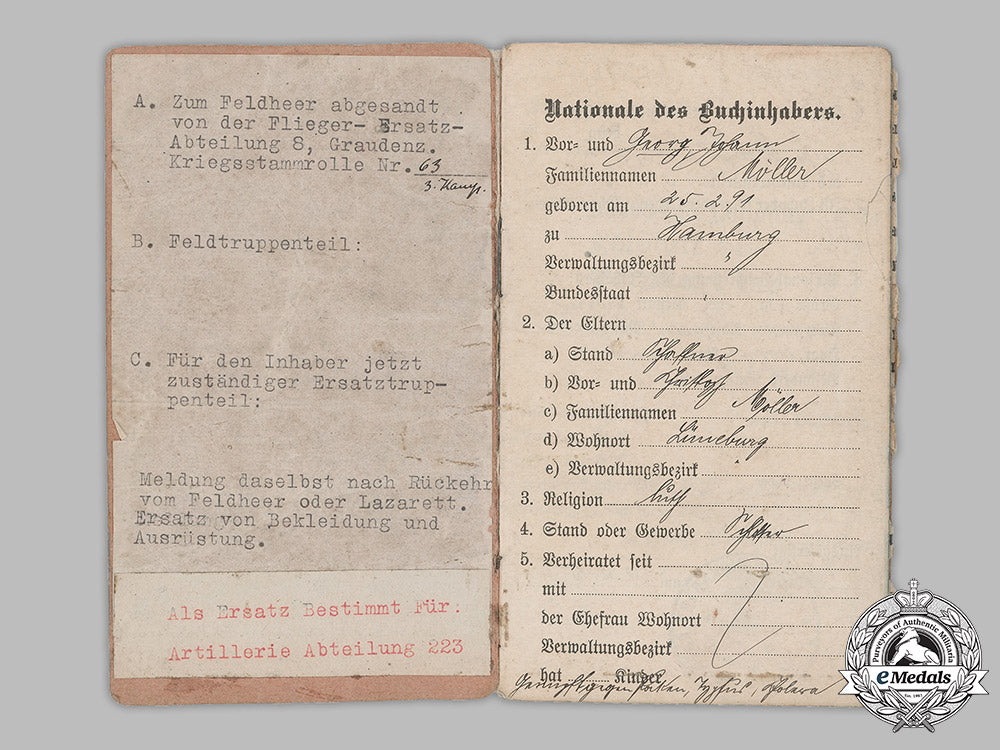 A. Zum Feldheer abgesandt
von der Flieger- Ersatz-
Abteilung 8, Graudenz.
Kriegsstammrolle Nr. 63
3. Komp.
B. Feldtruppenteil:
C. Für den Inhaber jetzt
zuständiger Ersatztrup-
penteil:
Meldung daselbst nach Rückehr
vom Feldheer oder Lazarett.
Ersatz von Bekleidung und
Ausrüstung.
Als Ersatz Bestimmt Für:
Artillerie Abteilung 223
Nationale des Buchinhabers.
1. Vor- und Georg Johann
Familiennamen Möller
geboren am 25. 2. 91
zu Hamburg
Verwaltungsbezirk "
Bundesstaat
2. Der Eltern
a) Stand Schaffner
b) Vor- und Christoph
c) Familiennamen Möller
d) Wohnort Lüneburg
e) Verwaltungsbezirk
3. Religion luth
4. Stand oder Gewerbe Schlosser
5. Verheiratet seit
mit
der Ehefrau Wohnort
Verwaltungsbezirk
hat Kinder
Typhus, Cholera
Purveyors of Authentic Militaria
eMedals
Est. 1967